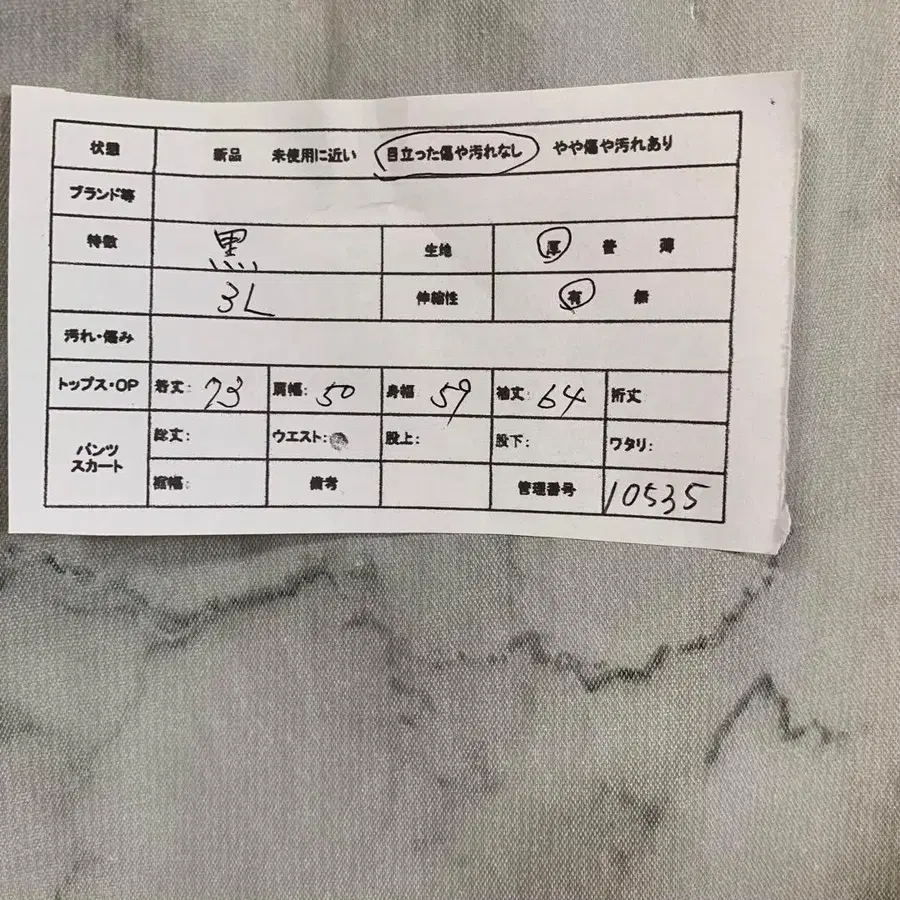 状態 新品 未使用に近い 目立った傷や汚れなし やや傷や汚れあり
ブランド等
特徴 黒 生地 厚 普 薄
3L 伸縮性 有 無
汚れ・傷み
トップス・OP 着丈: 73 肩幅: 50 身幅 59 袖丈: 64 裄丈
パンツ スカート 総丈: ウエスト: 股上: 股下: ワタリ:
裾幅: 備考 管理番号 10535